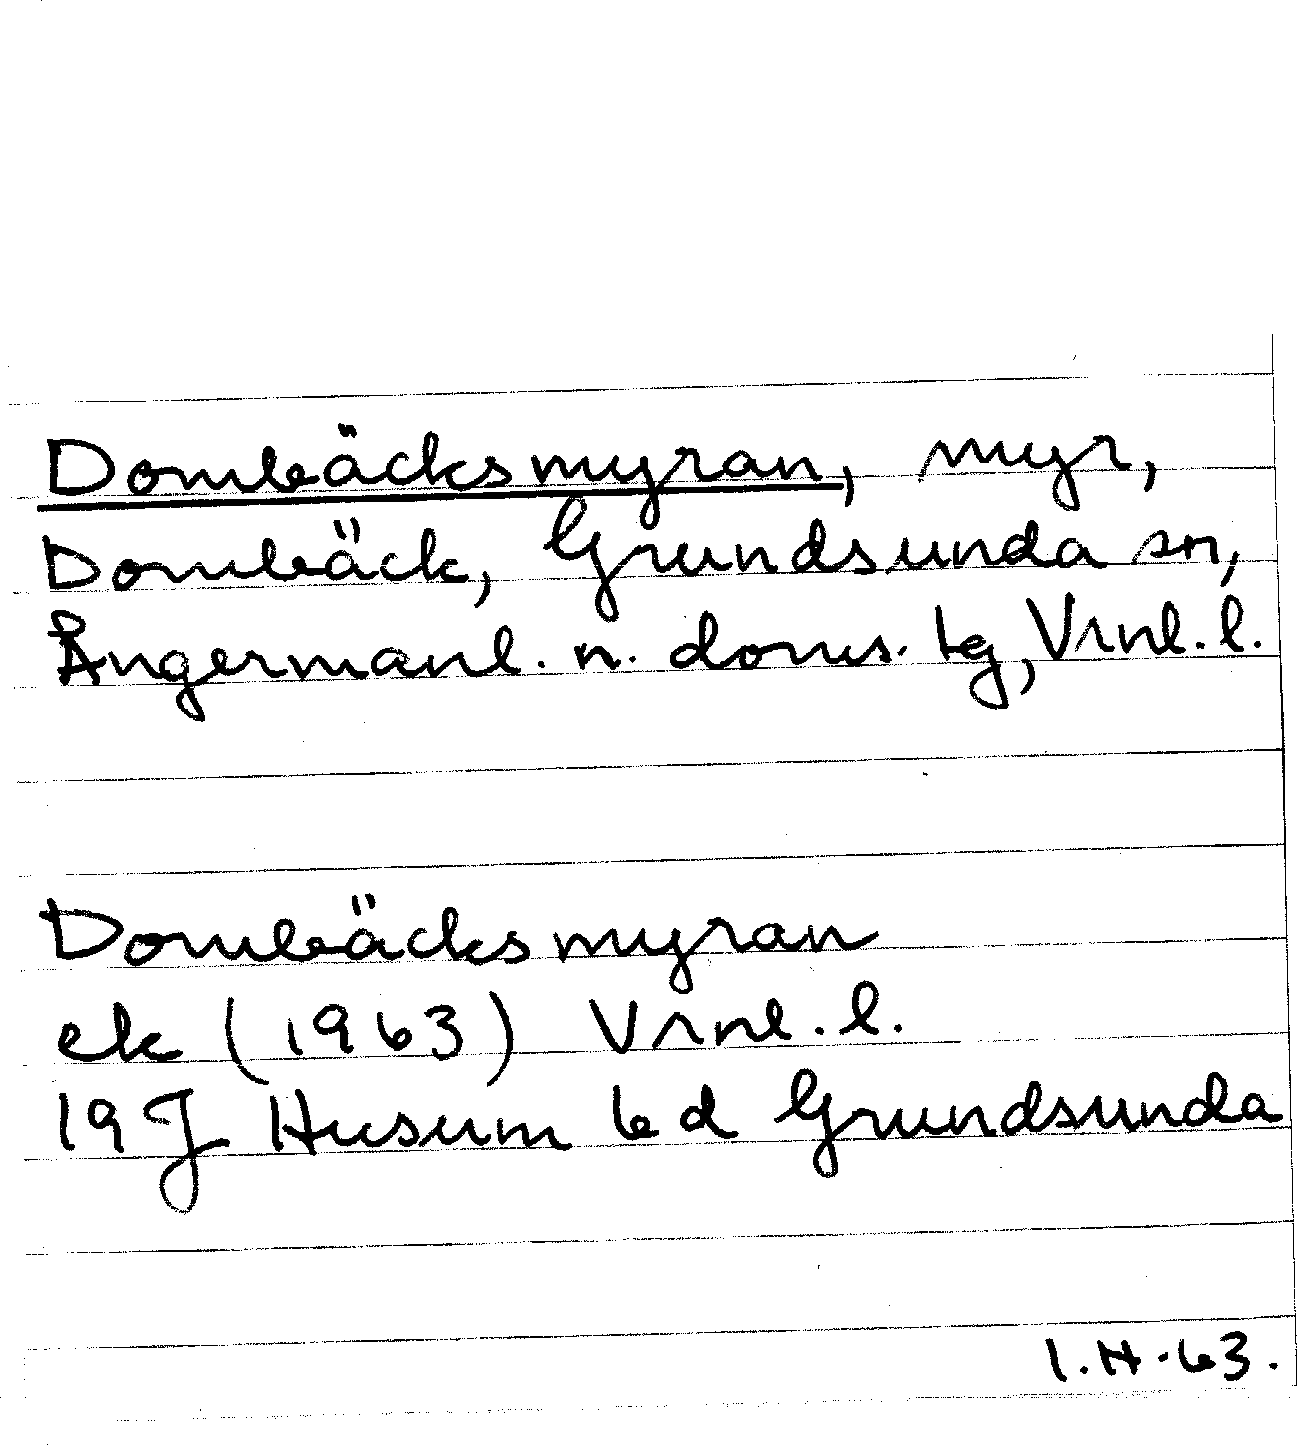 Dombäcksmyran, myr,
Dombäck, Grundsunda sn,
Ångermanl. n. doms. tg, Vrnl. l.
Dombäcksmyran
ek (1963) Vrnl. l.
19 J Husum bd Grundsunda
I. H. 63.